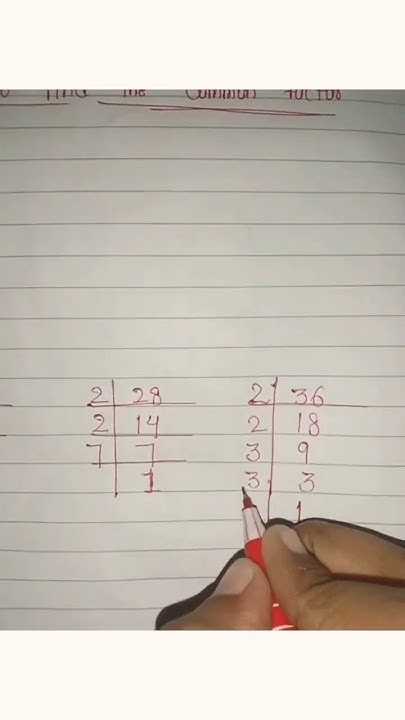 Find the Common factor
2 28 2 36
2 14 2 18
7 7 3 9
1 3 3
1